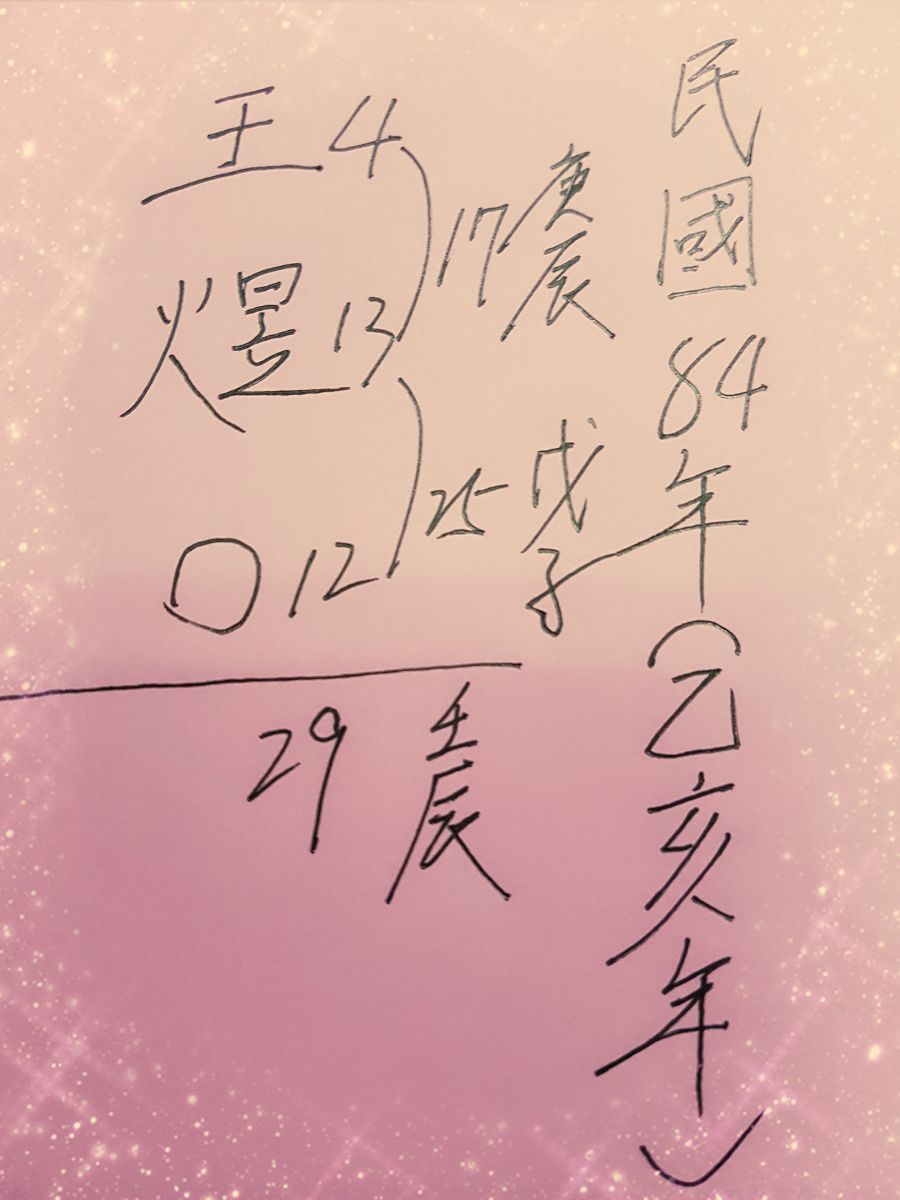 民國84年(乙亥年)
王 4
17 庚辰
煜 13
25 戊子
○ 12
29 壬辰